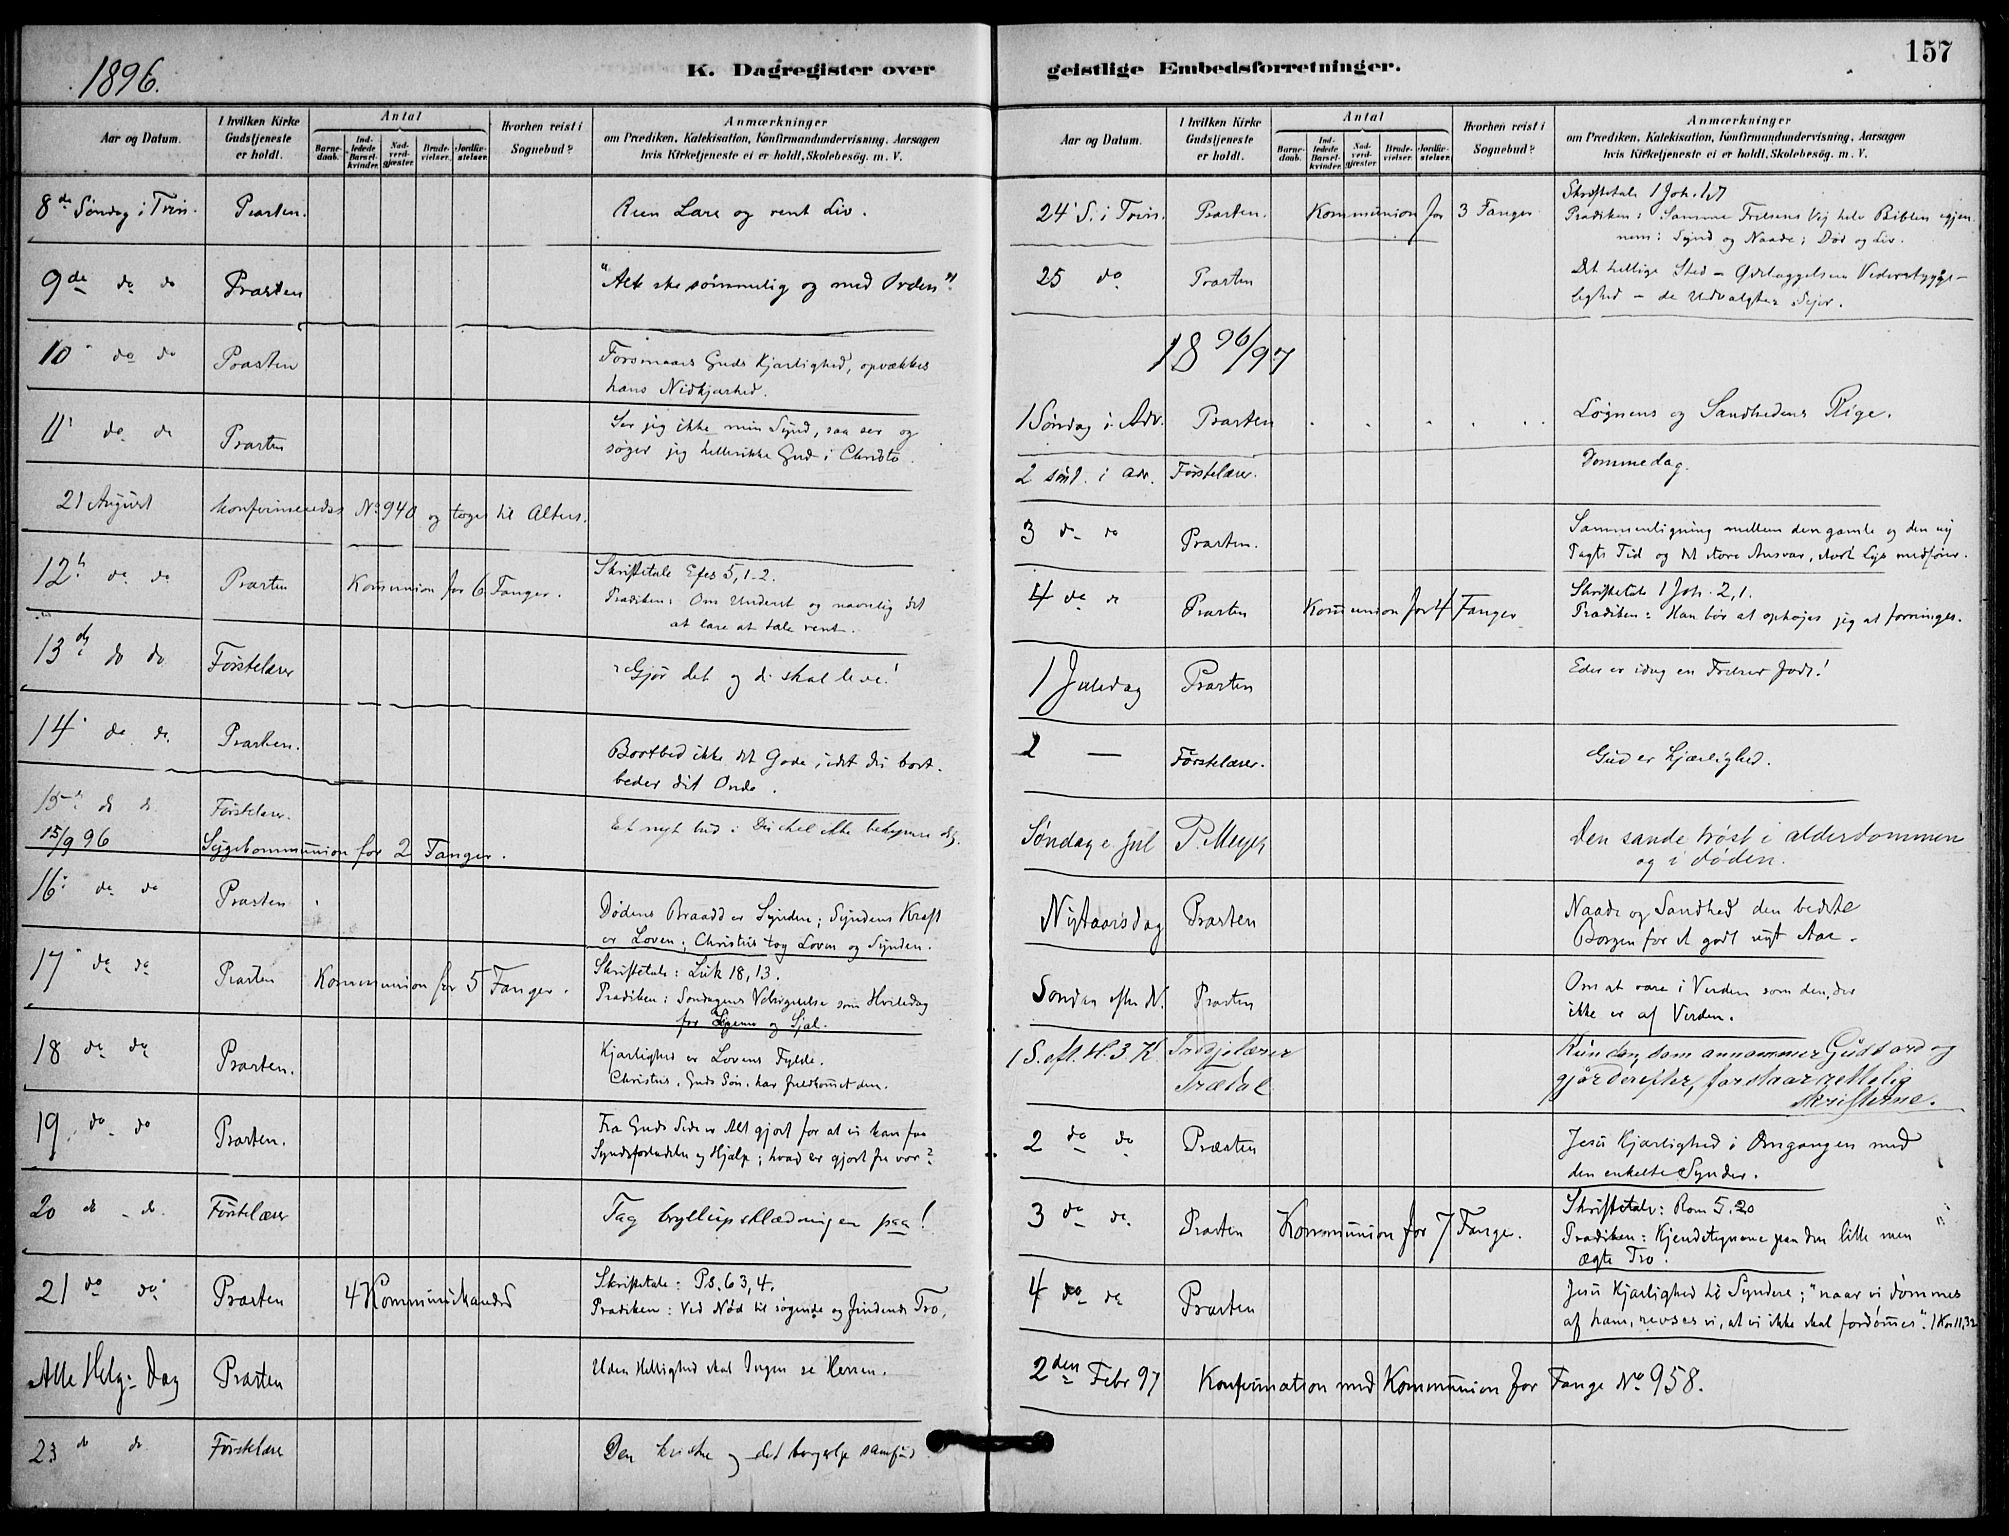 1896.
K. Dagregister over
Aar og Datum.
I hvilken Kirke Gudstjeneste er holdt.
Antal
Barnedaab.
Indledede Barselkvinder.
Nadverdgjester
Brudevielser.
Jordfæstelser.
Hvorhen reist i Sognebud?
Anmærkninger
om Prædiken, Katekisation, Konfirmandundervisning, Aarsagen
hvis Kirketjeneste ei er holdt, Skolebesög. m. V.
8de Søndag i Trin. Præsten. Reen Lære og rent Liv.
9de do do Præsten "Alt ske sömmelig og med Orden".
10' do do Præsten Forsmaaes Guds Kjærlighed, opvækkes
hans Nidkjærhed.
11' do do Præsten Ser jeg ikke min Synd, saa ser og
søger jeg hellerikke Gud i Christo.
21 August konfirmeredes No 940 og toges til Alters.
12' do do Præsten Kommunion for 6 Fanger. Skriftetale Efes 5, 1-2.
Prædiken: Om Underet og navnlig det
at lære at tale rent.
13 do do Førstelærer "Gjör det og du skal leve!
14' do do. Præsten. Bortbed ikke det Gode, idet du bort-
beder dit Onde.
15 do do Førstelærer. Et nyt bud: Du skal ikke bekymre dig.
15/9 96 Sygekommunion for 2 Fanger.
16' do do Præsten Dødens Braadd er Synden; Syndens Kraft
er Loven; Christus tog Loven og Synden.
17' do do Præsten Kommunion for 5 Fanger. Skriftetale: Luk 18, 13.
Prædiken: Søndagens Velsignelse som Hviledag
for Legeme og Sjæl.
18 do do Præsten. Kjærlighed er Lovens Fylde.
Christus, Guds Søn, har fuldkomet den.
19. do do Præsten. Fra Guds Side er Alt gjort for at vi kan faa
Syndsforladelse og Hjælp; hvad er gjort fra vor?
20 do - do. Førstelærer Tag bryllupsklædningen paa!
21 do do Præsten 47 Kommunikanter Skriftetale: Ps. 63, 4.
Prædiken: Ved Nød til søgende og findende Tro.
Alle Helg: Dag Præsten Uden Hellighed skal Ingen se Herren.
23 do do Førstelære Den kristne og det borgerlige samfund
157
geistlige Embedsforretninger.
Aar og Datum.
I hvilken Kirke Gudstjeneste er holdt.
Antal
Barnedaab.
Indledede Barselkvinder.
Nadverdgjester
Brudevielser.
Jordfæstelser.
Hvorhen reist i Sognebud?
Anmærkninger
om Prædiken, Katekisation, Konfirmandundervisning, Aarsagen
hvis Kirketjeneste ei er holdt, Skolebesög. m. V.
24' S. i Trin. Præsten. Kommunion for 3 Fanger. Skriftetale 1 Joh. 1,7
Prædiken: Samme Frelsens Vej hele Biblen igjen-
nem: Synd og Naade; Død og Liv.
25 do Præsten Det hellige Sted - Ødelæggelsens Vederstygge-
lighed - de Udvalgtes Sejer.
1896/97
1 Søndag i Adv. Præsten Løgnens og Sandhedens Rige.
2 sönd. i adv. Førstelærer. Dommedag.
3 do do Præsten. Sammenligning mellem den gamle og den ny
Pagts Tid og det store Ansvar, stort Lys medfører.
4 do do Præsten Kommunion for 4 Fanger Skriftetale 1 Joh. 2, 1.
Prædiken: Han bør at ophøjes jeg at forringes.
1 Juledag Præsten Eder er idag en Frelser født!
2 — Førstelærer. Gud er kjærlighed.
Søndag e Jul P. Meyer Den sande trøst i alderdommen
og i døden.
Nytaarsdag Præsten Naade og Sandhed den bedste
Borgen for et godt nyt Aar.
Søndag efter N. Præsten Om at være i Verden som den, der
ikke er af Verden.
1 S. eft. H. 3 K Tredjelærer
Trætal Kun den, som annammer Guds ord og
gjør derefter, forstaar rettelig
skrifterne.
2 do do Præsten Jesu Kjærlighed i Omgangen med
den enkelte Synder.
3 do do. Præsten Kommunion for 7 Fange. Skriftetale: Rom 5. 20
Prædiken: Kjendetegnene paa den lille men
ægte Tro.
4 do do Præsten Jesu Kjærlighed til Syndere; "naar vi dømmes
af ham, revses vi, at vi ikke skal fordömes". 1 Kor 11,32
2den Febr 97 Konfirmation med Kommunion for Fange No 958.